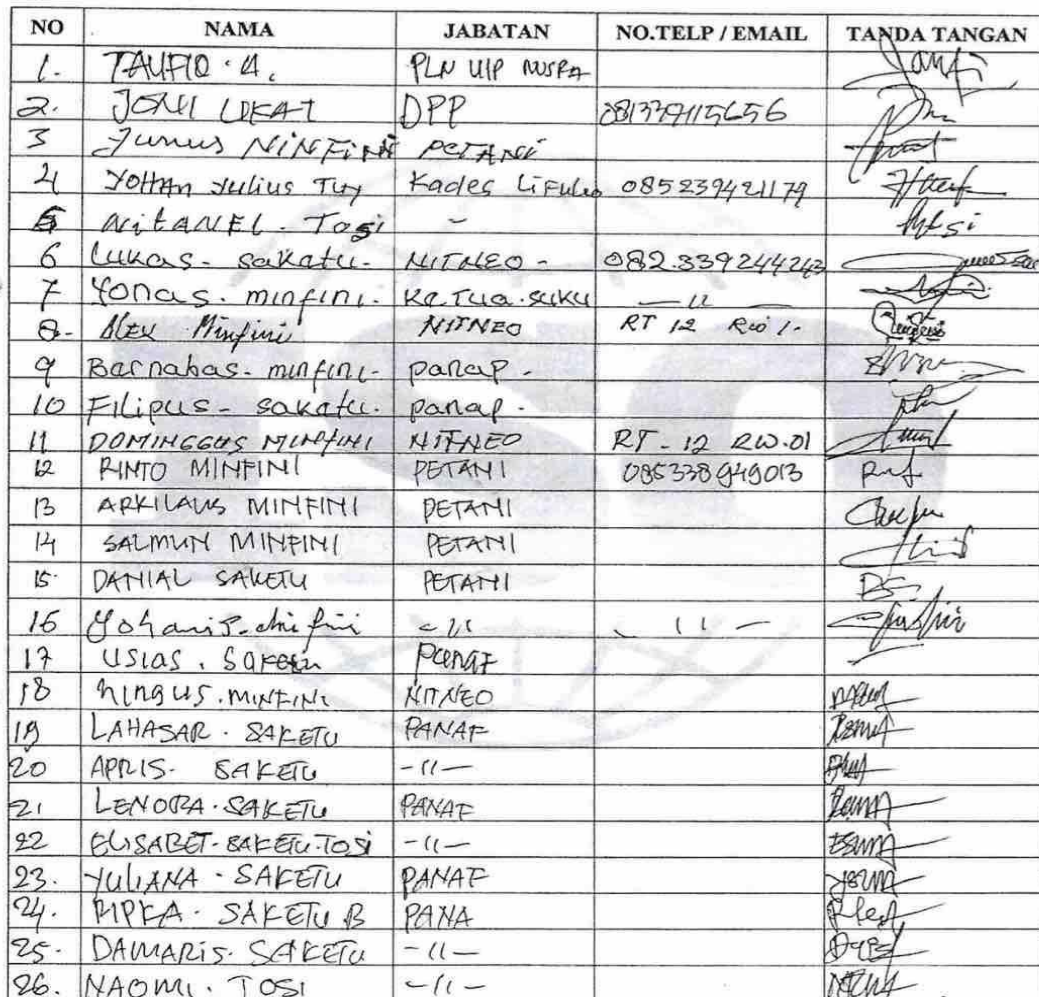 NO NAMA JABATAN NO.TELP / EMAIL TANDA TANGAN
1. TAUFIQ . A. PLN UIP NUSRA
2. JONI LIKAT DPP 081339115656
3 Junus NINFINI PETANI
4 YOHAN Yulius Tuy Kades Lifuleo 085239421179
5 NitANEL. Tosi -
6 Lukas - sakatu - NITNEO - 082.339244243
7 Yonas. minfini. Ketua.suku — 11 —
8. Alex Minfini NITNEO RT 12 RW 1.
9 Barnabas - minfini - panap -
10 Filipus - sakatu. panap -
11 DOMINGGUS MINFINI NITNEO RT - 12 RW.01
12 RINTO MINFINI PETANI 085338949013
13 ARKILAUS MINFINI PETANI
14 SALMUN MINFINI PETANI
15. DANIAL SAKETU PETANI
16 - 11 - 11 —
17 USIAS . Saketu Panaf
18 Ningus. MINFINI NITNEO
19 LAHASAR . SAKETU PANAF
20 APRIS - SAKETU - 11 —
21 LENORA . SAKETU PANAF
22 ELISABET - SAKETU-TOSI - 11 —
23. YULIANA - SAKETU PANAF
24. RIPKA . SAKETU B PANA
25. DAMARIS. SAKETU - 11 —
26. NAOMI . TOSI - 11 —
ISO